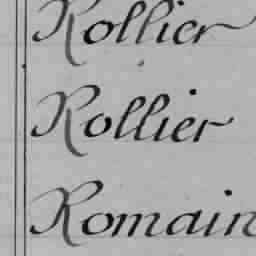 Rollier
Rollier
Romain